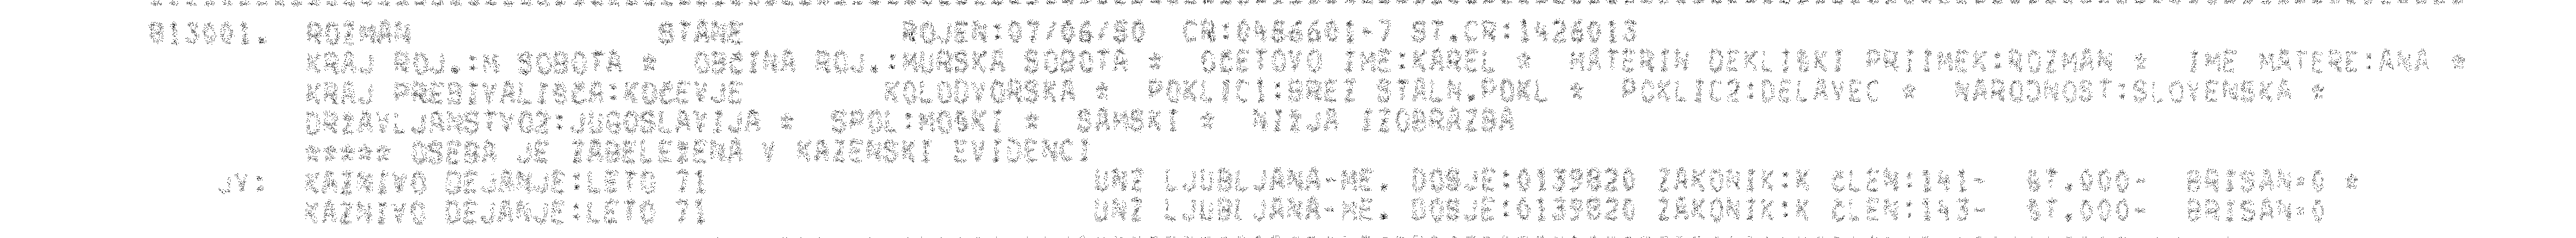 013001. ROZMAN STANE ROJEN:07/06/50 CR:0486601-7 ST.CR:1426013
KRAJ ROJ.:M SOBOTA * OBČINA ROJ.:MURSKA SOBOTA * OČETOVO IME:KAREL * MATERIN DEKLIŠKI PRIIMEK:ROZMAN * IME MATERE:ANA *
KRAJ PREBIVALIŠČA:KOČEVJE KOLODVORSKA * POKLIC1:BREZ STALN.POKL * POKLIC2:DELAVEC * NARODNOST:SLOVENSKA *
DRŽAVLJANSTVO2:JUGOSLAVIJA * SPOL:MOŠKI * SAMSKI * NIŽJA IZOBRAZBA
***** OSEBA JE ZABELEŽENA V KAZENSKI EVIDENCI
JV: KAZNIVO DEJANJE:LETO 71 UNZ LJUBLJANA-ME. DOSJE:0139820 ZAKONIK:K ČLEN:141- ŠT.000- BRISAN=0 *
KAZNIVO DEJANJE:LETO 71 UNZ LJUBLJANA-ME. DOSJE:0139820 ZAKONIK:K ČLEN:143- ŠT.000- BRISAN=0